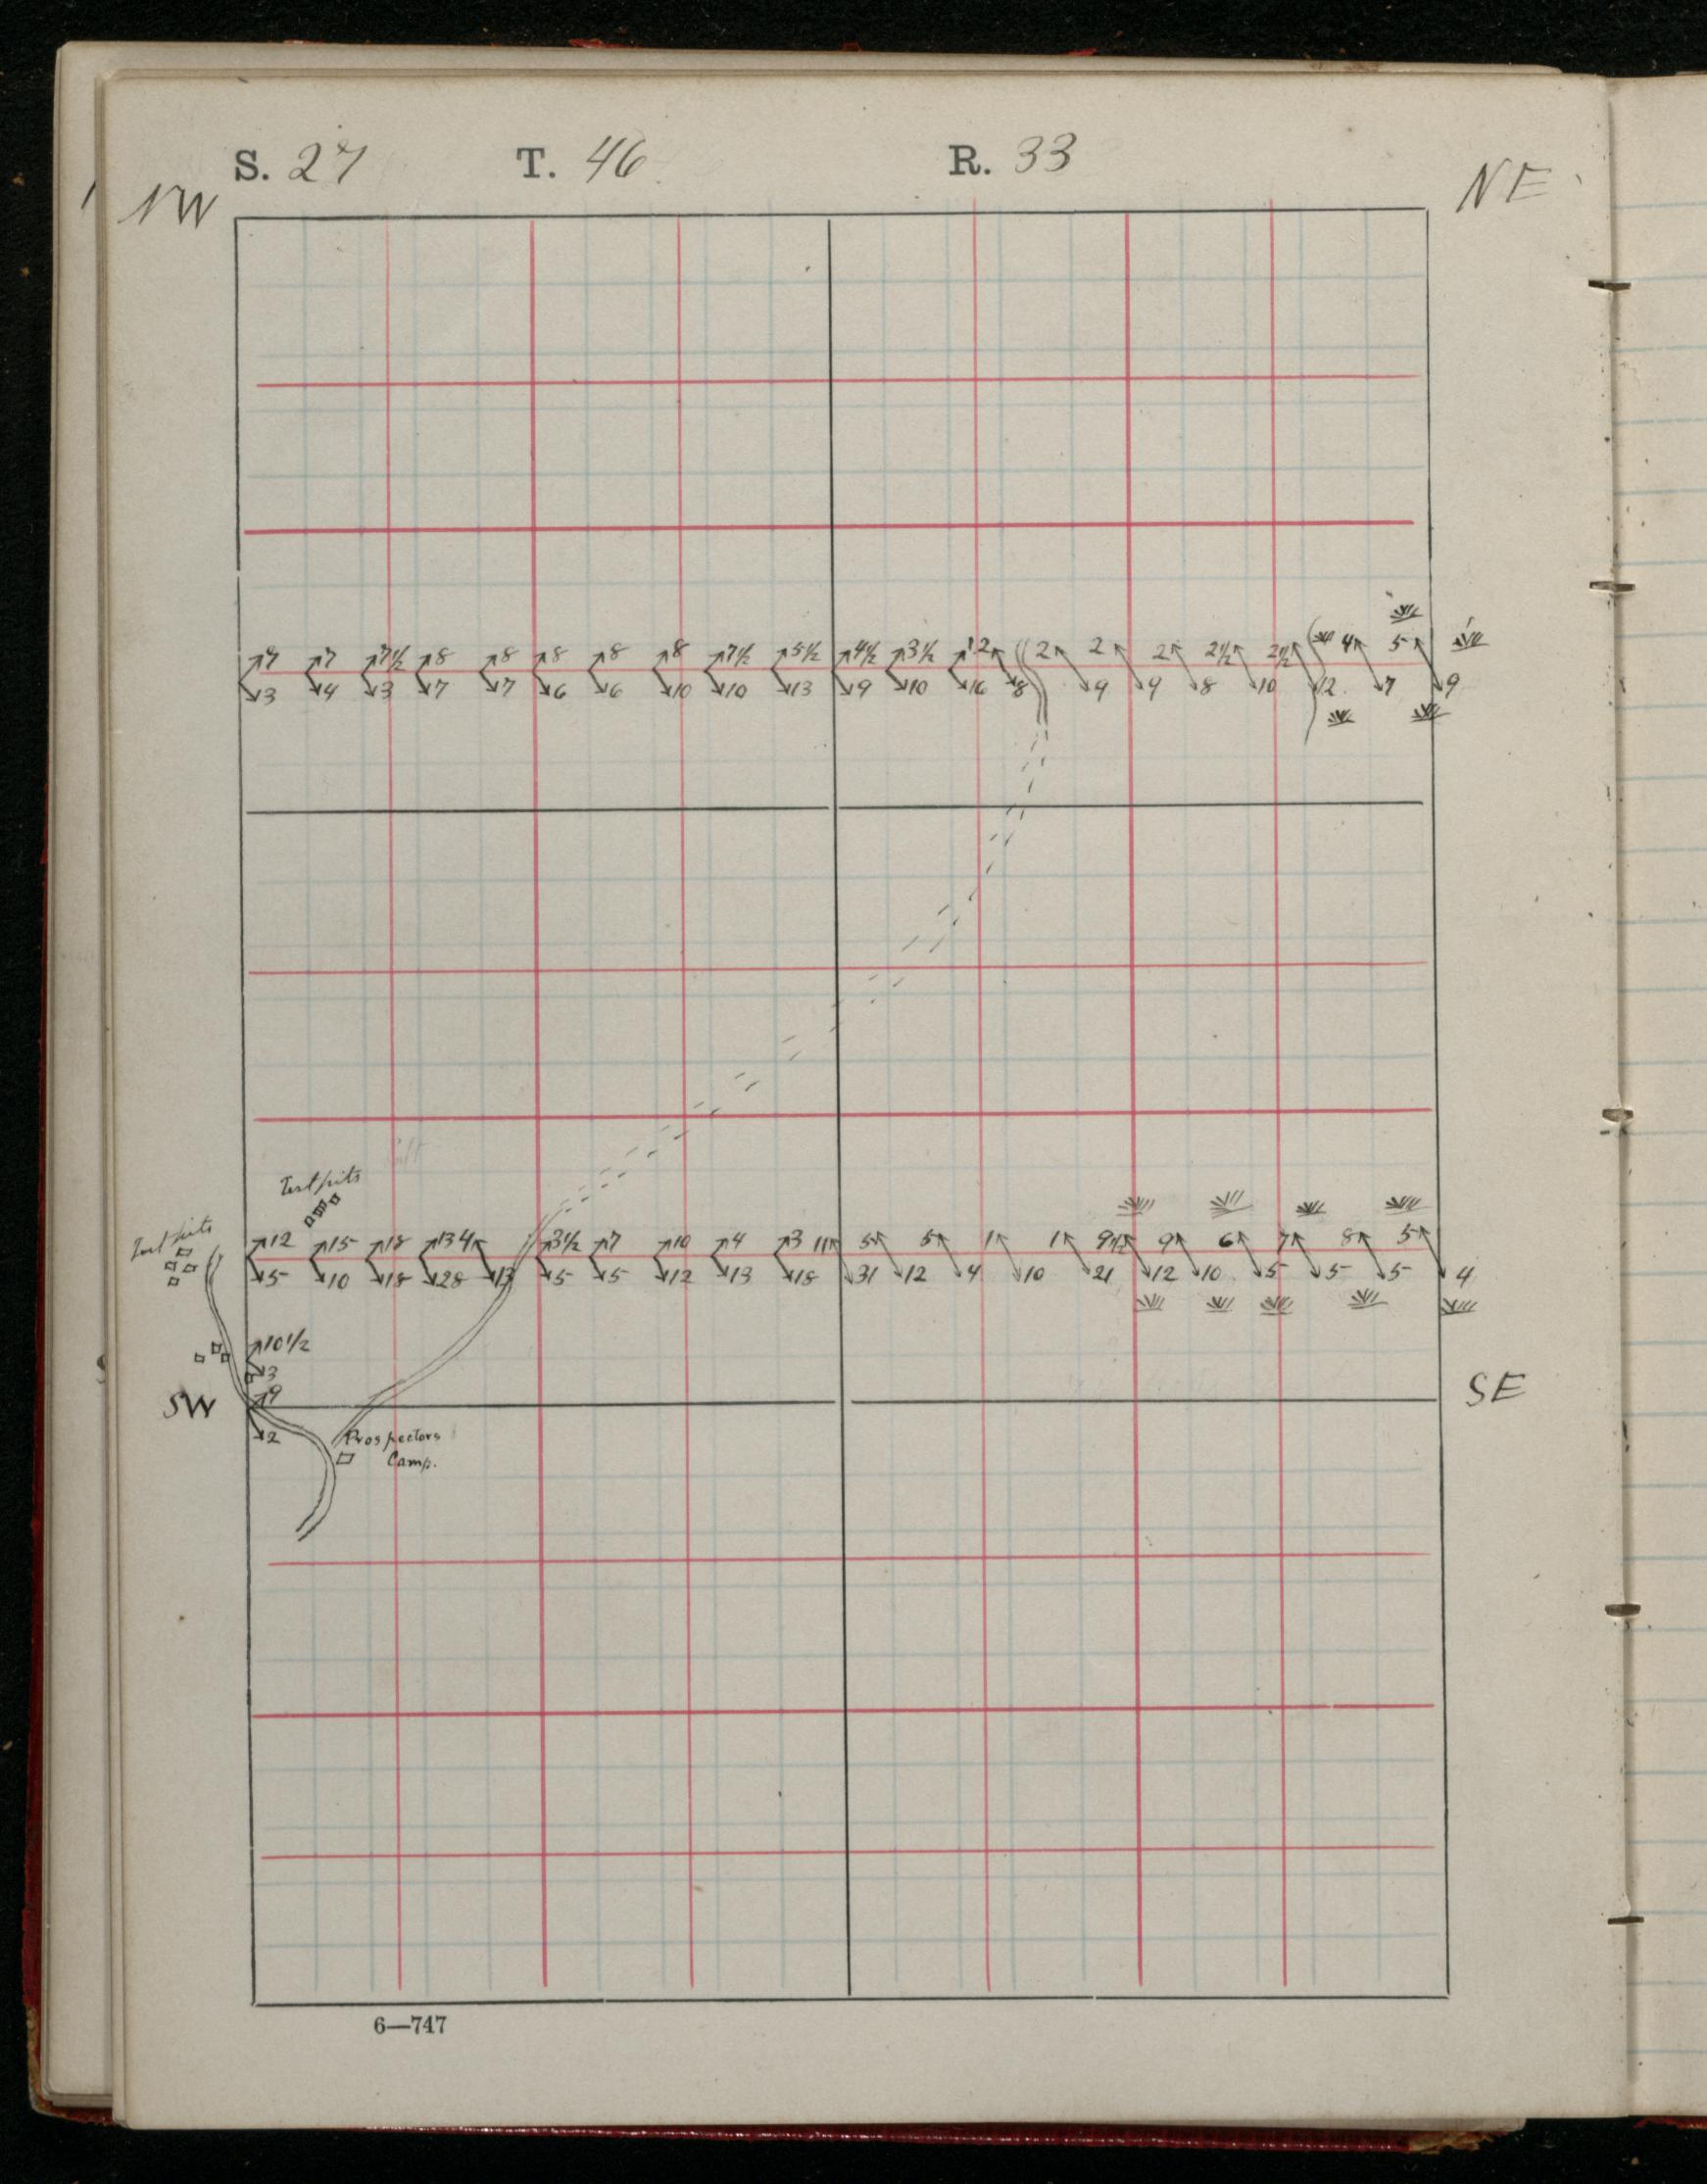 S. 27 T. 46 R. 33
NW NE
7 7 7½ 8 8 8 8 8 7½ 5½ 4½ 3½ 12 2 2 2 2½ 2½ 4 5
3 4 3 7 7 6 6 10 10 13 9 10 16 8 9 9 8 10 12 7 9
Test pits
Test pits
12 15 18 13 4 3½ 7 10 4 3 11 5 5 1 1 9½ 9 6 7 8 5
5 10 18 28 13 5 5 12 13 18 31 12 4 10 21 12 10 5 5 5 4
10½
3
9
SW SE
2
Prospectors
Camp.
6—747